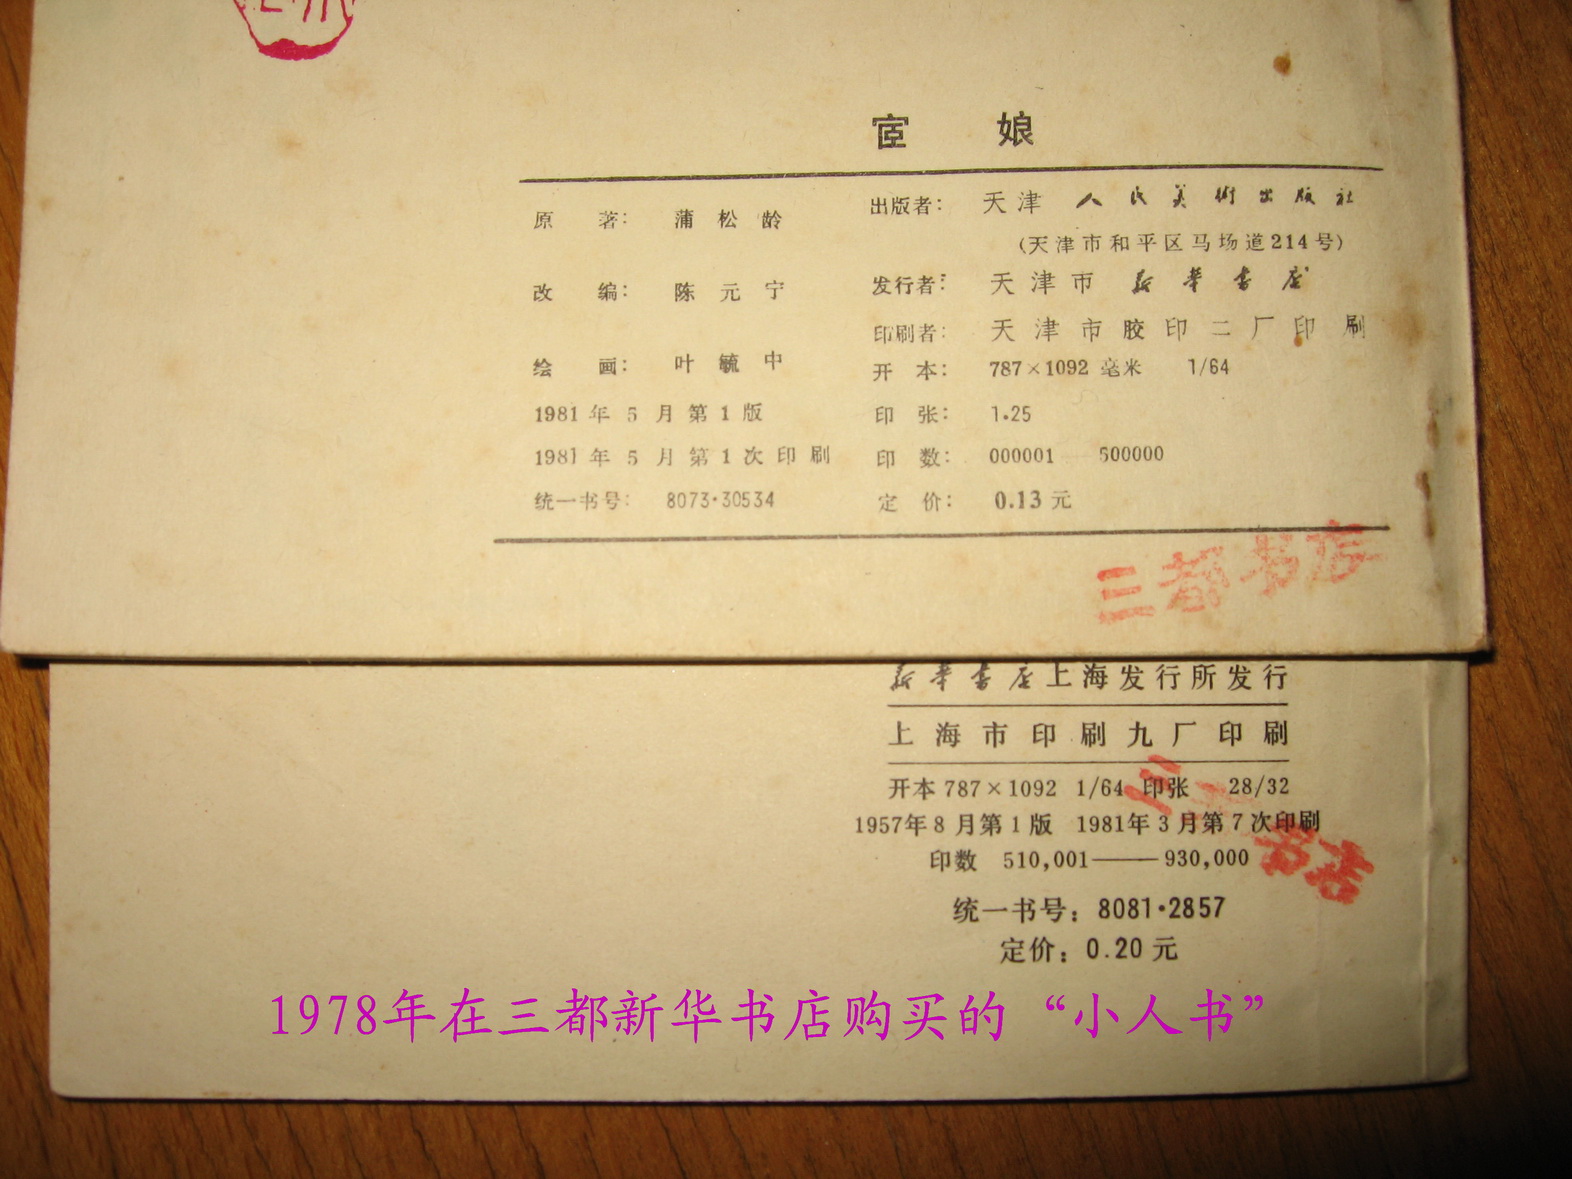 宦 娘
原 著： 蒲 松 龄
改 编： 陈 元 宁
绘 画： 叶 毓 中
1981 年 5 月 第 1 版
1981 年 5 月 第 1 次 印 刷
统一书号： 8073·30534
出版者： 天津 人民美術出版社
(天津市和平区马场道214号)
发行者： 天津市 新華書店
印刷者： 天津市胶印二厂印刷
开 本： 787×1092 毫米 1/64
印 张： 1.25
印 数： 000001—500000
定 价： 0.13 元
三都书店
新華書店上海发行所发行
上海市印刷九厂印刷
开本 787×1092 1/64 印张 28/32
1957年8月第1版 1981年3月第7次印刷
印数 510,001——930,000
统一书号：8081·2857
定价：0.20 元
三 书店
1978年在三都新华书店购买的“小人书”